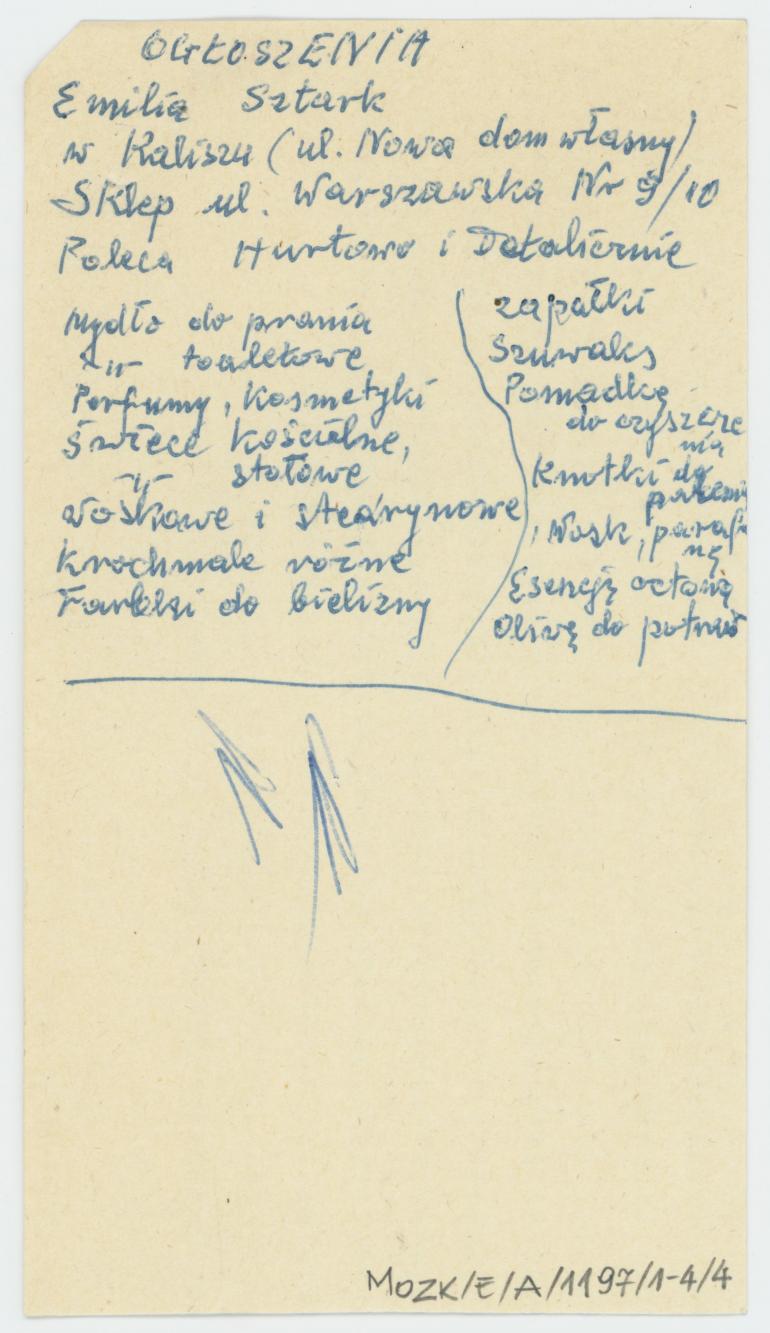 OGŁOSZENIA
Emilia Sztark
w Kaliszu (ul. Nowa dom własny)
Sklep ul. Warszawska Nr 9/10
Poleca Hurtowo i Detalicznie
Mydło do prania
-"- toaletowe
Perfumy, Kosmetyki
Świece Kościelne,
-"- stołowe
woskowe i stearynowe
Krochmale różne
Farbki do bielizny
zapałki
Szuwaks
Pomadkę
do czyszcze
nia
Knotki do
palenia
, Wosk, parafi
nę
Esencję octową
Oliwę do potraw
MOZK/E/A/1197/1-4/4